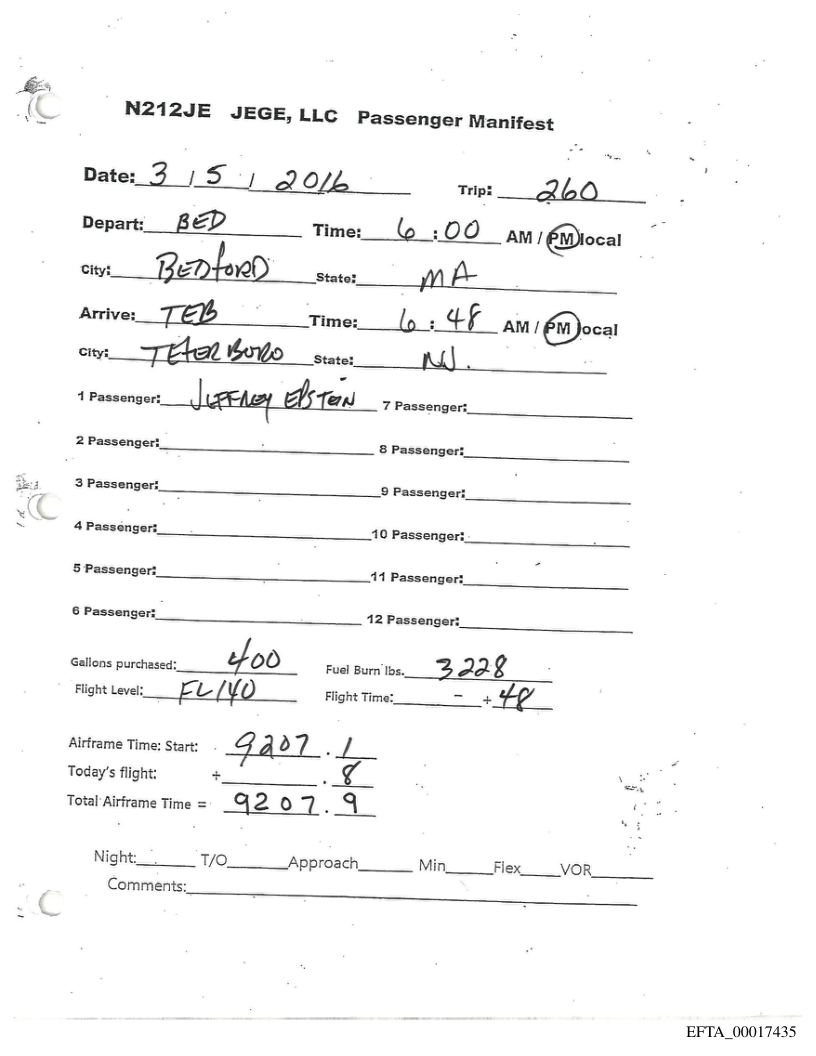 N212JE JEGE, LLC Passenger Manifest
Date: 3 / 5 / 2016 Trip: 260
Depart: BED Time: 6 : 00 AM / PM local
City: BEDFORD State: MA
Arrive: TEB Time: 6 : 48 AM / PM local
City: TETERBORO State: NJ.
1 Passenger: JEFFREY EPSTEIN 7 Passenger:
2 Passenger: 8 Passenger:
3 Passenger: 9 Passenger:
4 Passenger: 10 Passenger:
5 Passenger: 11 Passenger:
6 Passenger: 12 Passenger:
Gallons purchased: 400 Fuel Burn lbs. 3228
Flight Level: FL140 Flight Time: - + 48
Airframe Time: Start: 9207 . 1
Today's flight: + . 8
Total Airframe Time = 9207 . 9
Night: T/O Approach Min Flex VOR
Comments:
EFTA_00017435